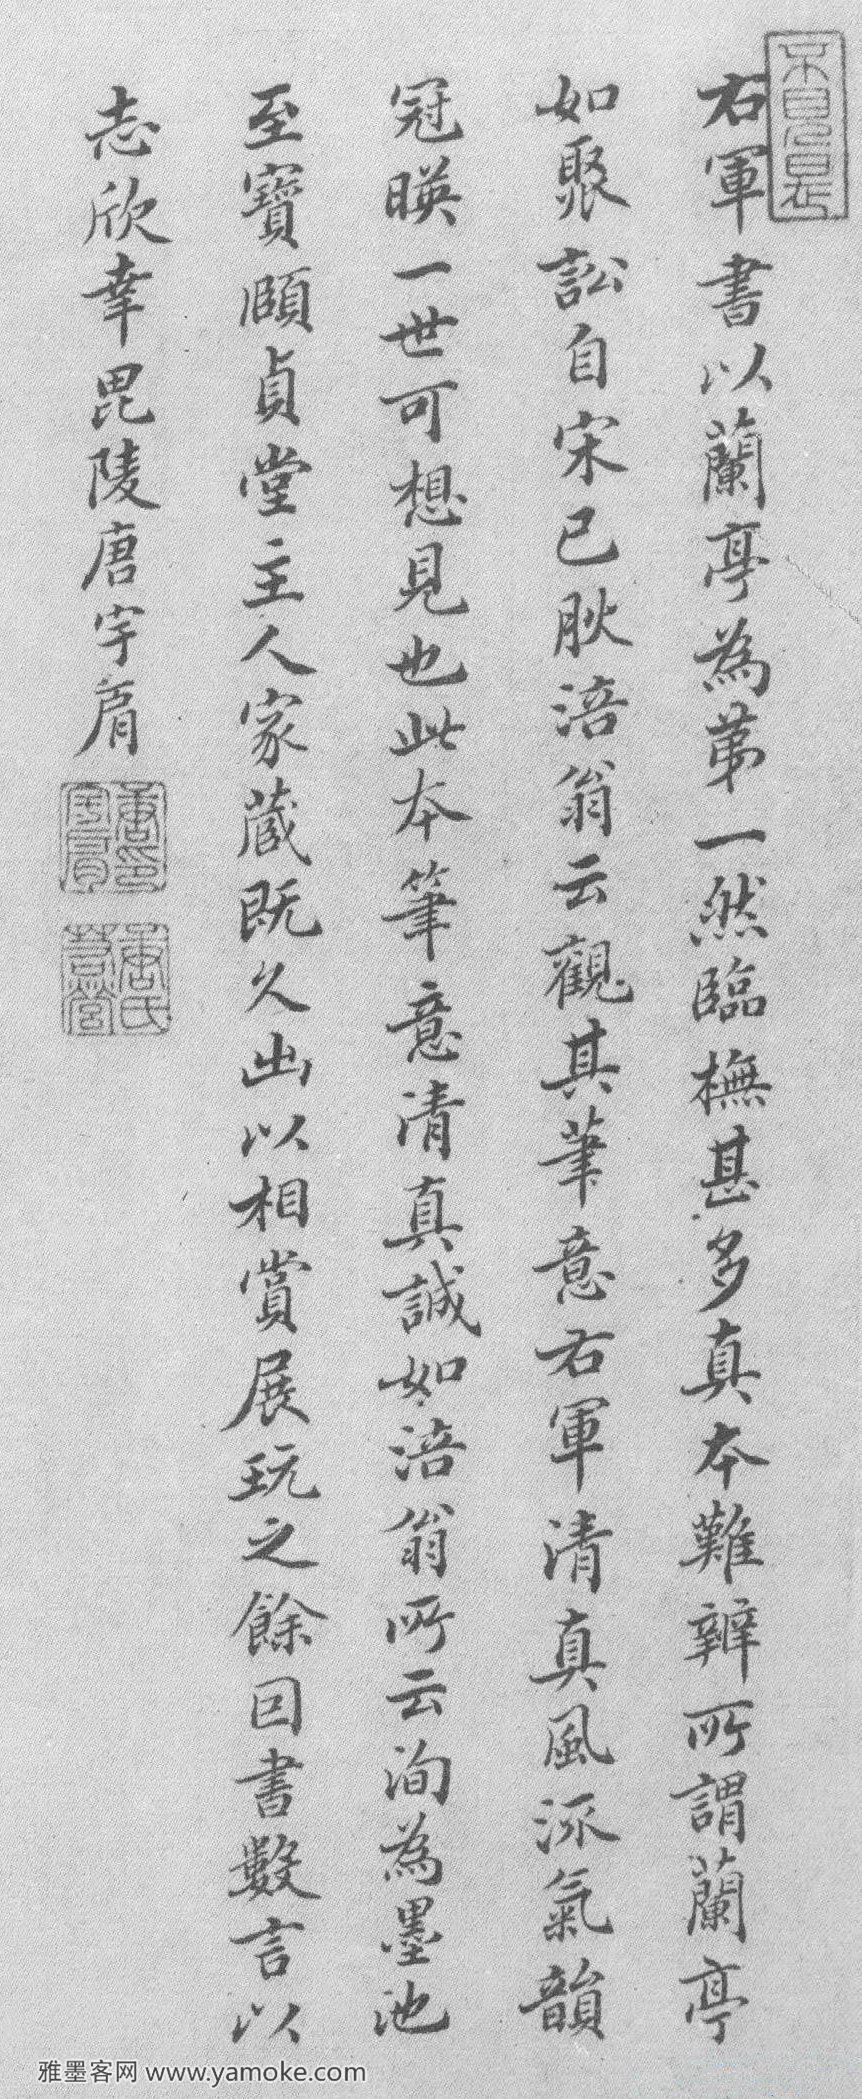 不自見是
右軍書以蘭亭為第一然臨橅甚多真本難辨所謂蘭亭
如聚訟自宋已肰涪翁云觀其筆意右軍清真風流氣韻
冠暎一世可想見也此本筆意清真誠如涪翁所云洵為墨池
至寶頤貞堂主人家藏既久出以相賞展玩之餘回書數言以
志欣幸毘陵唐宇肩
唐印宇肩
唐氏
雅墨客网 www.yamoke.com